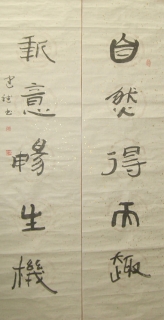 自然得天趣
新意暢生機